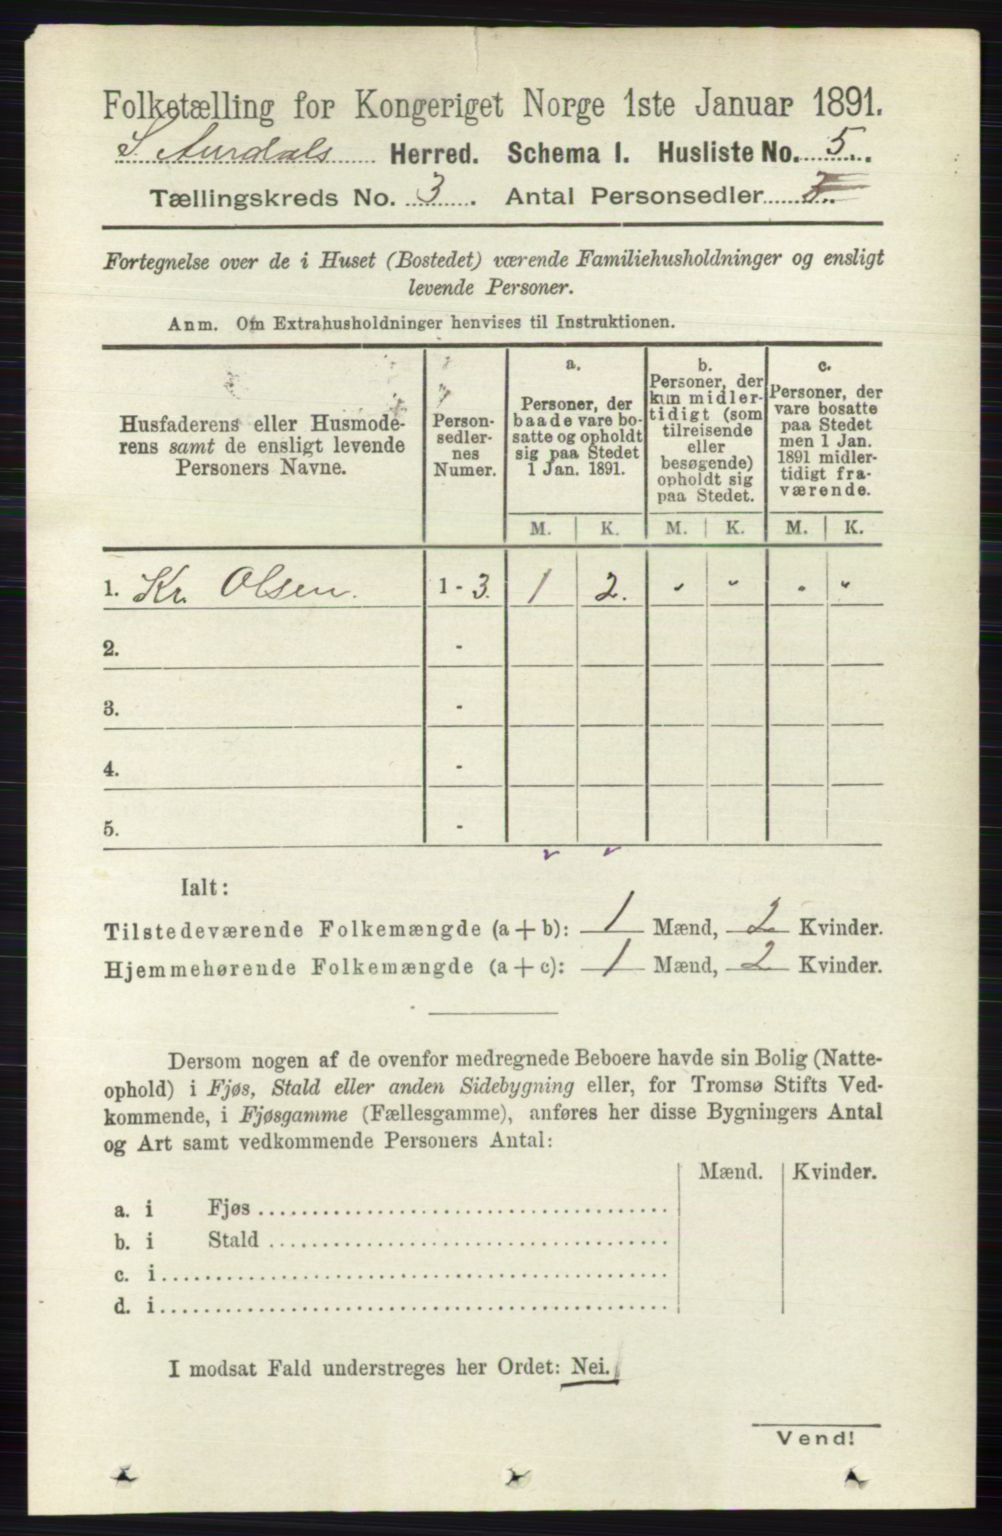 Folketælling for Kongeriget Norge 1ste Januar 1891.
S. Aurdals Herred. Schema I. Husliste No. 5.
Tællingskreds No. 3. Antal Personsedler
Fortegnelse over de i Huset (Bostedet) værende Familiehusholdninger og ensligt
levende Personer.
Anm. Om Extrahusholdninger henvises til Instruktionen.
Husfaderens eller Husmode-
rens samt de ensligt levende
Personers Navne.
Person-
sedler-
nes
Numer.
a.
Personer, der
baade vare bo-
satte og opholdt
sig paa Stedet
1 Jan. 1891.
b.
Personer, der
kun midler-
tidigt (som
tilreisende
eller
besøgende)
opholdt sig
paa Stedet.
c.
Personer, der
vare bosatte
paa Stedet
men 1 Jan.
1891 midler-
tidigt fra-
værende.
M. K. M. K. M. K.
1. Kr. Olsen. 1 - 3. 1 2. " " " "
2. -
3. -
4. -
5. -
Ialt:
Tilstedeværende Folkemængde (a + b): 1 Mænd, 2 Kvinder.
Hjemmehørende Folkemængde (a + c): 1 Mænd, 2 Kvinder.
Dersom nogen af de ovenfor medregnede Beboere havde sin Bolig (Natte-
ophold) i Fjøs, Stald eller anden Sidebygning eller, for Tromsø Stifts Ved-
kommende, i Fjøsgamme (Fællesgamme), anføres her disse Bygningers Antal
og Art samt vedkommende Personers Antal:
Mænd. Kvinder.
a. i Fjøs
b. i Stald
c. i
d. i
I modsat Fald understreges her Ordet: Nei.
Vend!